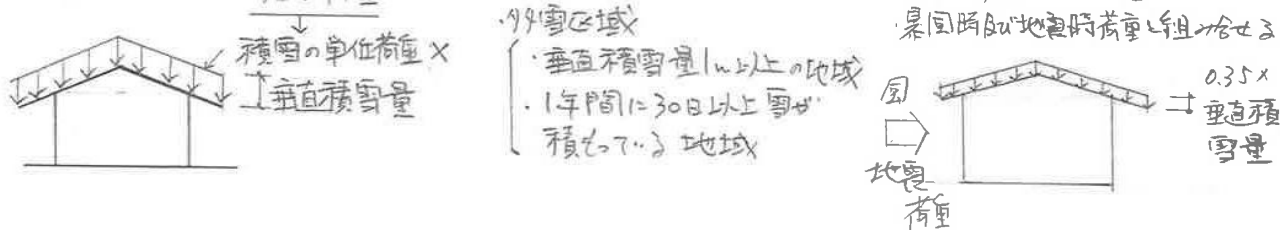 積雪の単位荷重×
垂直積雪量
・多雪区域
・垂直積雪量1m以上の地域
・1年間に30日以上雪が
積もっている地域
・暴風時及び地震時荷重と組み合せる
風
地震
荷重
0.35×
垂直積
雪量